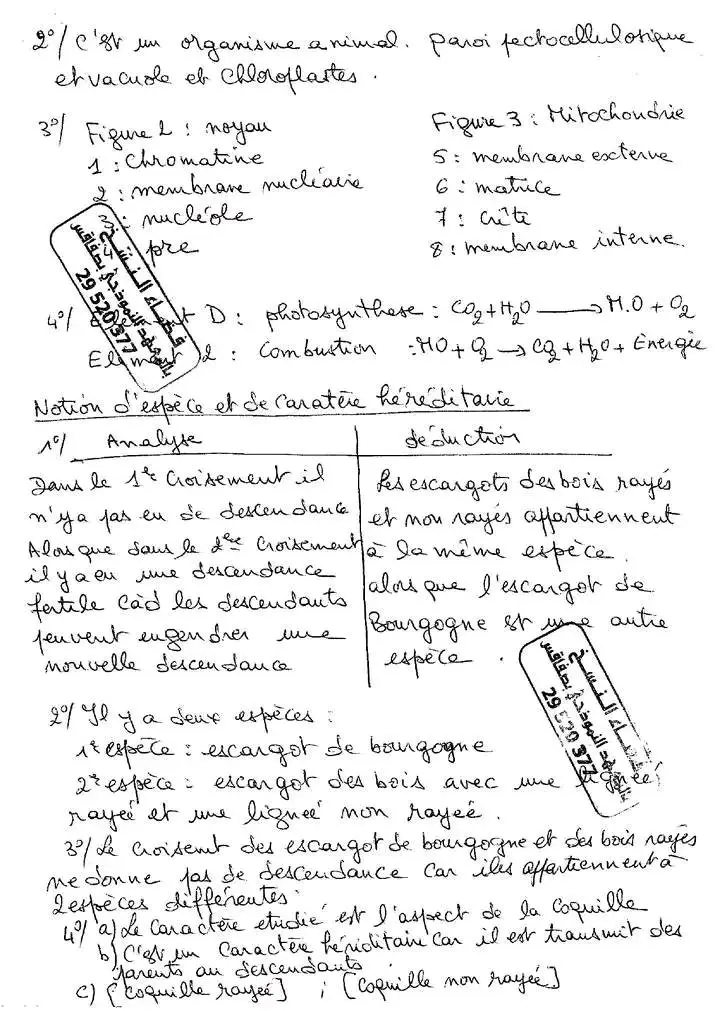 2°/ C'est un organisme animal. paroi pectocellulosique
et vacuole et chloroplastes.
3°/ Figure 2 : noyau
1 : Chromatine
2 : membrane nucléaire
3 : nucléole
pre
Figure 3 : Mitochondrie
5 : membrane externe
6 : matrice
7 : Crête
8 : membrane interne.
4°/ D : photosynthese : CO2 + H2O → M.O + O2
Element : Combustion : MO + O2 → CO2 + H2O + Energie
فضاء النسخ
بالمعهد النموذجي بصفاقس
29 520 377
Notion d'espèce et de caratère héréditaire
1°/ Analyse
Dans le 1er Croisement il
n'ya pas eu de descendance
Alors que dans le 2ème Croisement
il y a eu une descendance
fertile càd les descendants
peuvent engendrer une
nouvelle descendance
déduction
Les escargots des bois rayés
et non rayés appartiennent
à la même espèce.
alors que l'escargot de
Bourgogne est une autre
espèce.
فضاء النسخ
بالمعهد النموذجي بصفاقس
29 520 377
2°/ Il y a deux espèces :
1re espèce : escargot de bourgogne
2e espèce : escargot des bois avec une lignée
rayée et une lignée non rayée.
3°/ Le croisemt des escargot de bourgogne et des bois rayés
ne donne pas de descendance car iles appartiennent à
2 espèces différentes.
4°/ a) Le Caractère etudié est l'aspect de la coquille
b) C'est un Caractère hériditaire car il est transmit des
parents au descendants.
c) [coquille rayée] ; [coquille non rayée]